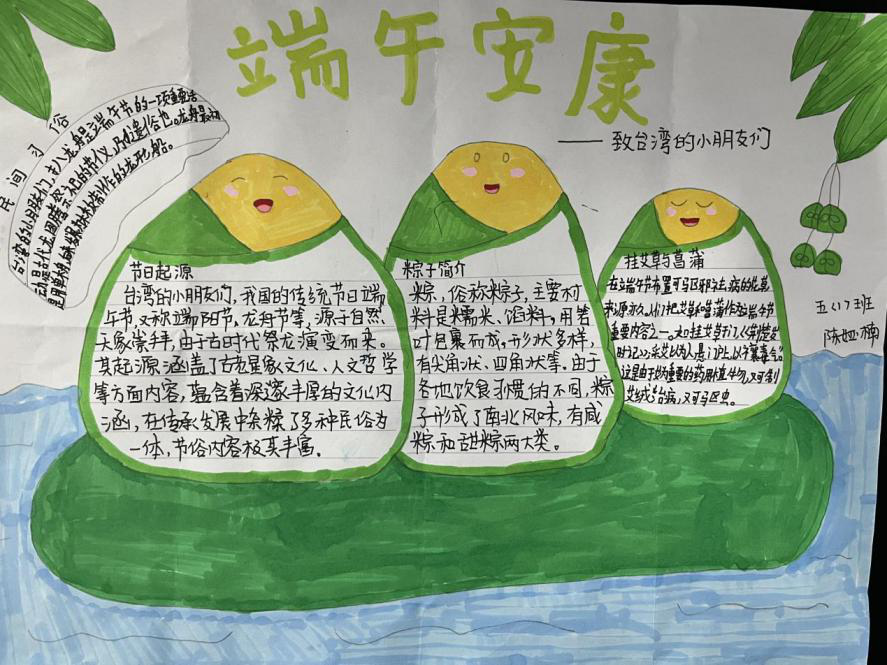 端午安康
——致台湾的小朋友们
民间习俗
台湾的小朋友们,扒龙舟是端午节的一项重要活
动,是古代龙图腾祭祀的节仪,乃其遗俗也。龙舟最初
是用单木
制作的龙形船。
节日起源
台湾的小朋友们,我国的传统节日端
午节,又称端阳节,龙舟节等,源于自然
天象崇拜,由于古时代祭龙演变而来。
其起源涵盖了古老星象文化、人文哲学
等方面内容,蕴含着深邃丰厚的文化内
涵,在传承发展中杂糅了多种民俗为
一体,节俗内容极其丰富。
粽子简介
粽,俗称粽子,主要材
料是糯米、馅料,用箬
叶包裹而成,形状多样,
有尖角状、四角状等。由于
各地饮食习惯的不同,粽
子形成了南北风味,有咸
粽和甜粽两大类。
挂艾草与菖蒲
在端午节布置可驱邪祛病的花草
来源亦久。人们把艾草和菖蒲作为端午节
重要内容之一。如挂艾草于门,《荆楚岁
时记》:采艾以为人,悬门户上,以禳毒气。
这是由于艾为重要的药用植物,又可制
艾绒治病,又可驱虫。
五(1)班
陈娅楠